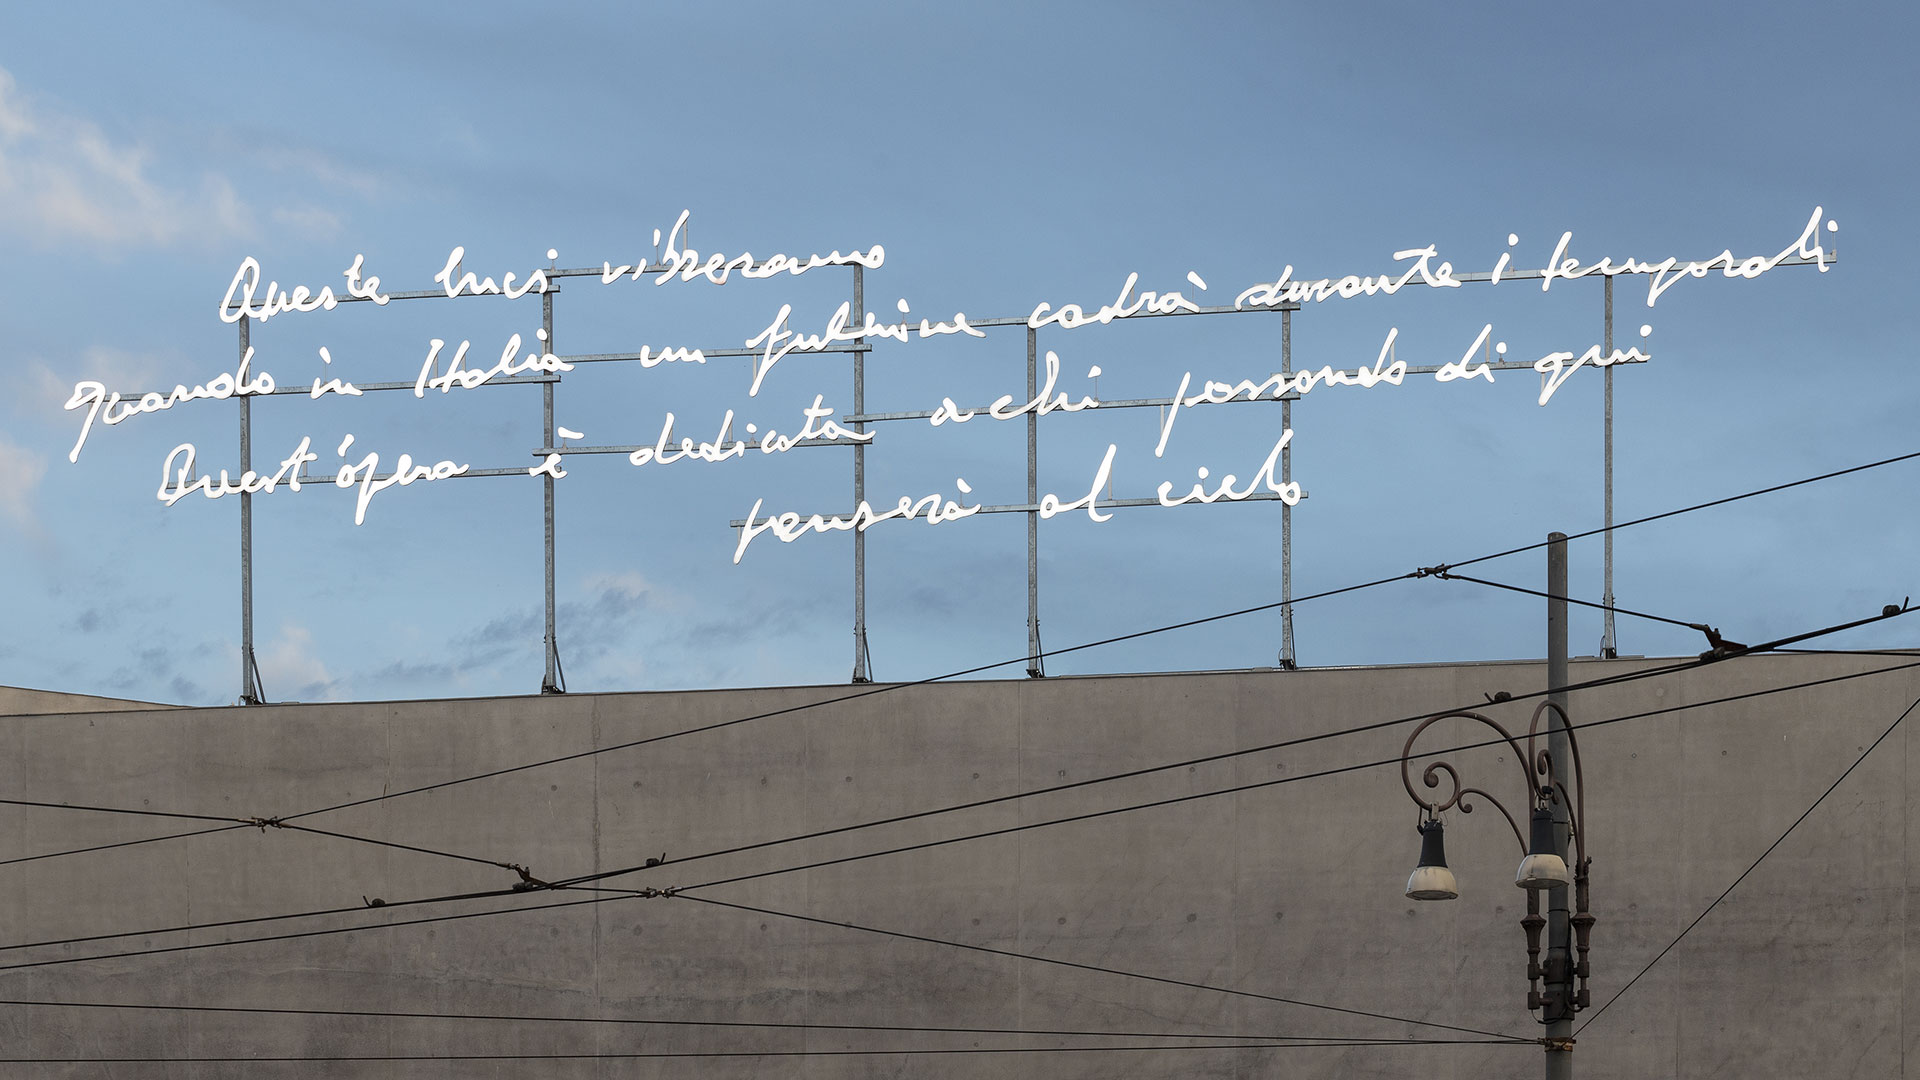 Queste luci vibreranno
quando in Italia un fulmine cadrà durante i temporali
Quest'opera è dedicata a chi passando di qui
penserà al cielo